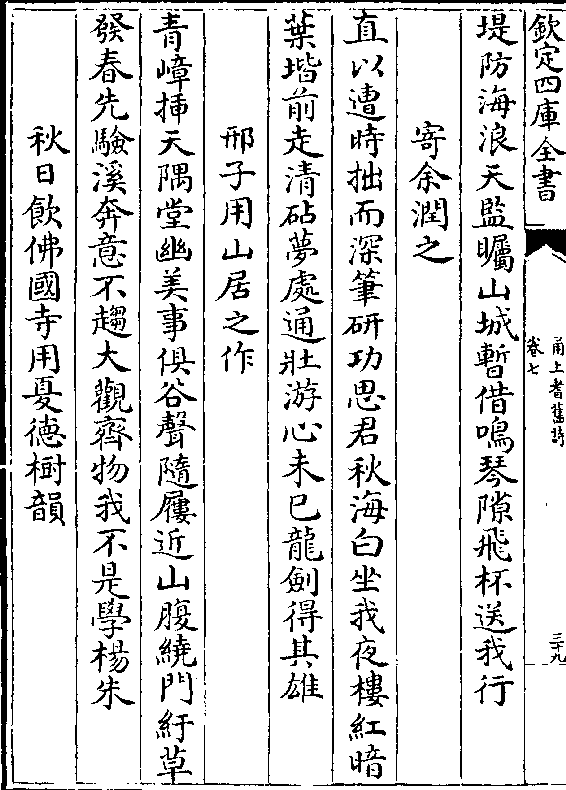 欽定四庫全書
甬上耆舊詩
卷七
三十九
堤防海浪天監矚山城暫借鳴琴隙飛杯送我行
寄余潤之
直以遭時拙而深筆研功思君秋海白坐我夜樓紅暗
葉堦前走清砧夢處通壯游心未已龍劍得其雄
邢子用山居之作
青嶂揷天隅堂幽美事俱谷聲隨屨近山腹繞門紆草
發春先驗溪奔意不趨大觀齊物我不是學楊朱
秋日飲佛國寺用憂德樹韻